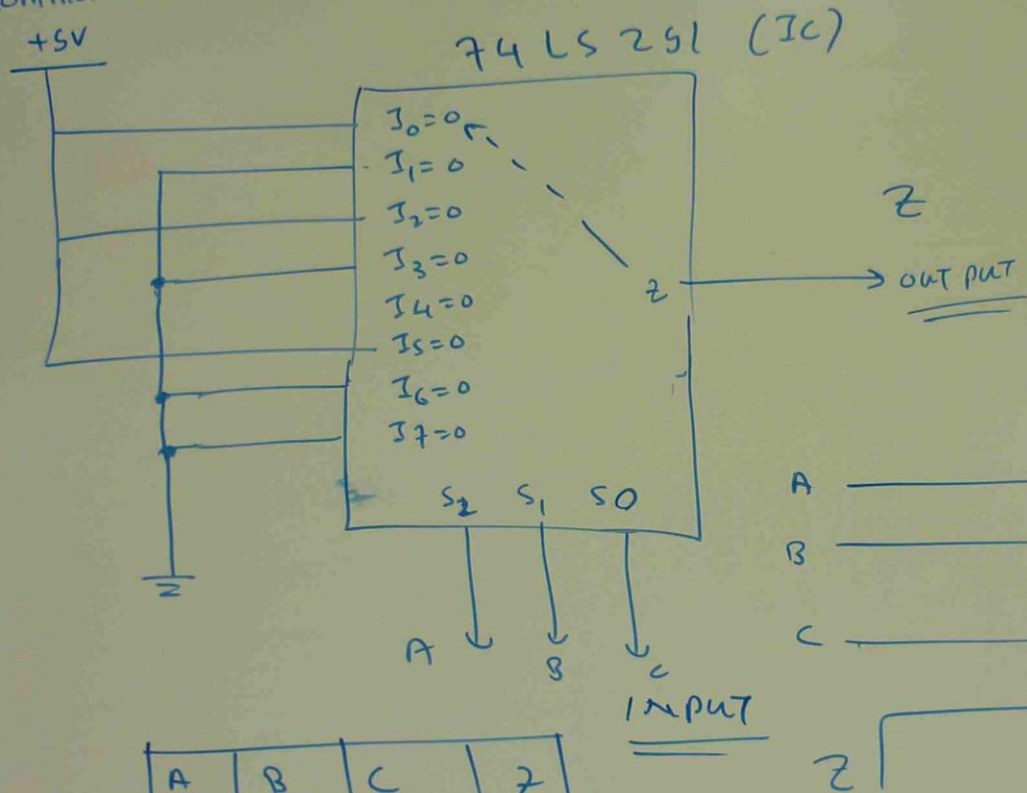 +5V
74LS251 (IC)
I0=0
I1=0
I2=0
I3=0
I4=0
I5=0
I6=0
I7=0
Z
Z
OUTPUT
S2 S1 S0
A
B
C
A
B
C
INPUT
A B C Z
Z